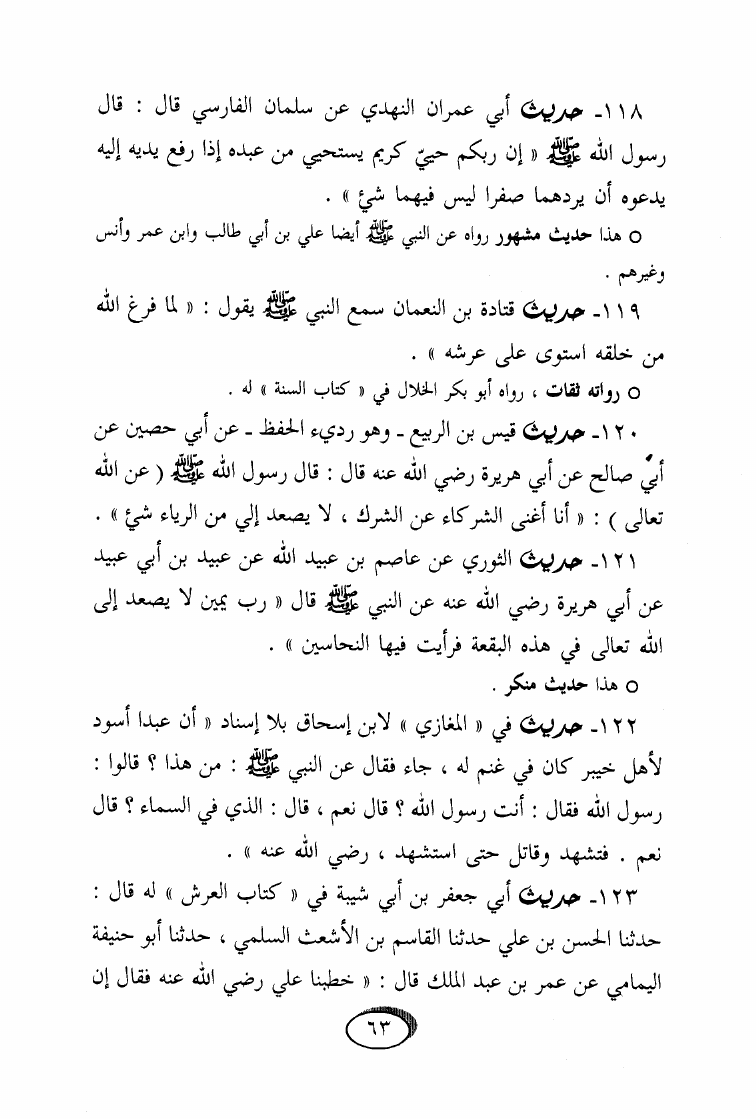 ١١٨ـ حديث أبي عمران النهدي عن سلمان الفارسي قال : قال
رسول الله ﷺ « إن ربكم حييّ كريم يستحيي من عبده إذا رفع يديه إليه
يدعوه أن يردهما صفرا ليس فيهما شئ » .
○ هذا حديث مشهور رواه عن النبي ﷺ أيضا علي بن أبي طالب وابن عمر وأنس
وغيرهم .
١١٩ـ حديث قتادة بن النعمان سمع النبي ﷺ يقول : « لما فرغ الله
من خلقه استوى على عرشه » .
○ رواته ثقات ، رواه أبو بكر الخلال في « كتاب السنة » له .
١٢٠ـ حديث قيس بن الربيع ـ وهو رديء الحفظ ـ عن أبي حصين عن
أبي صالح عن أبي هريرة رضي الله عنه قال : قال رسول الله ﷺ ( عن الله
تعالى ) : « أنا أغنى الشركاء عن الشرك ، لا يصعد إلي من الرياء شئ » .
١٢١ـ حديث الثوري عن عاصم بن عبيد الله عن عبيد بن أبي عبيد
عن أبي هريرة رضي الله عنه عن النبي ﷺ قال « رب يمين لا يصعد إلى
الله تعالى في هذه البقعة فرأيت فيها النحاسين » .
○ هذا حديث منكر .
١٢٢ـ حديث في « المغازي » لابن إسحاق بلا إسناد « أن عبدا أسود
لأهل خيبر كان في غنم له ، جاء فقال عن النبي ﷺ : من هذا ؟ قالوا :
رسول الله فقال : أنت رسول الله ؟ قال نعم ، قال : الذي في السماء ؟ قال
نعم . فتشهد وقاتل حتى استشهد ، رضي الله عنه » .
١٢٣ـ حديث أبي جعفر بن أبي شيبة في « كتاب العرش » له قال :
حدثنا الحسن بن علي حدثنا القاسم بن الأشعث السلمي ، حدثنا أبو حنيفة
اليمامي عن عمر بن عبد الملك قال : « خطبنا علي رضي الله عنه فقال إن
٦٣